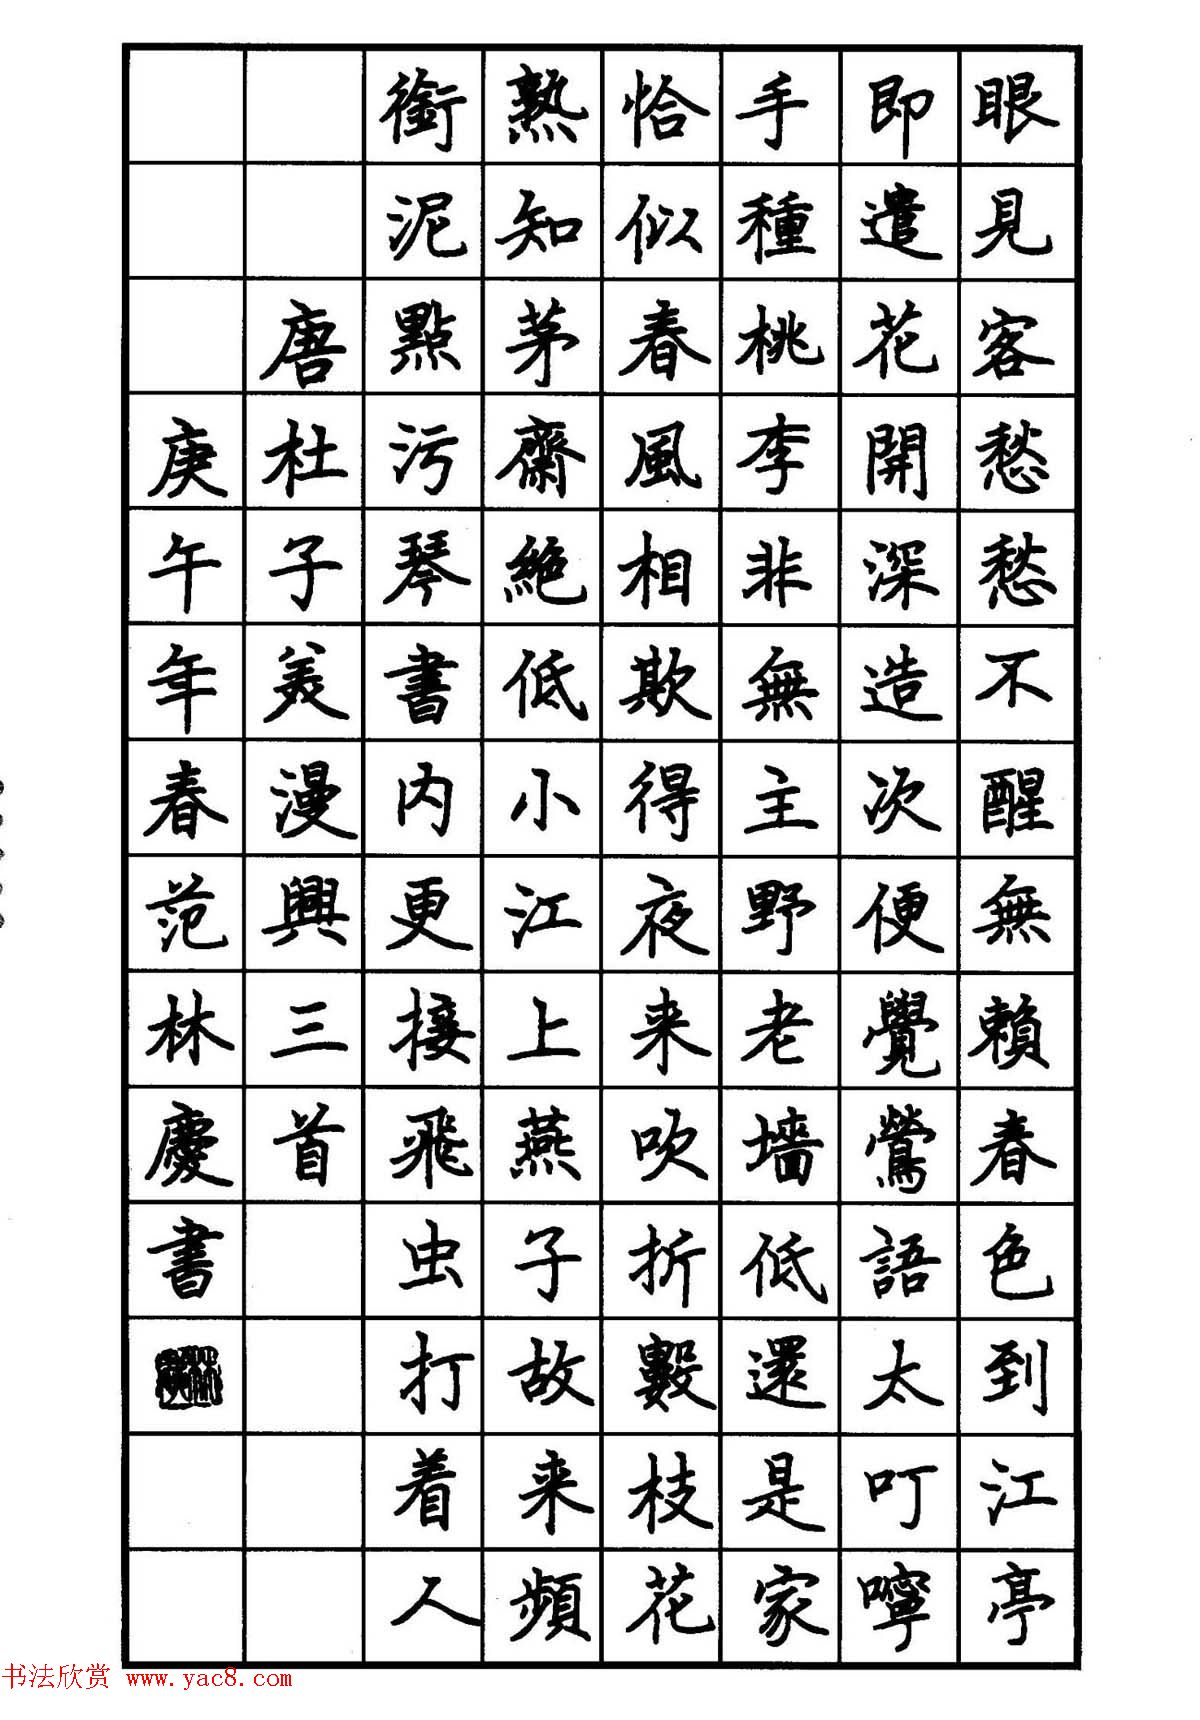 眼見客愁愁不醒無賴春色到江亭
即遣花開深造次便覺鶯語太叮嚀
手種桃李非無主野老墻低還是家
恰似春風相欺得夜来吹折數枝花
熟知茅齋絶低小江上燕子故来頻
銜泥點污琴書内更接飛虫打着人
唐杜子美漫興三首
庚午年春范林慶書
书法欣赏 www.yac8.com